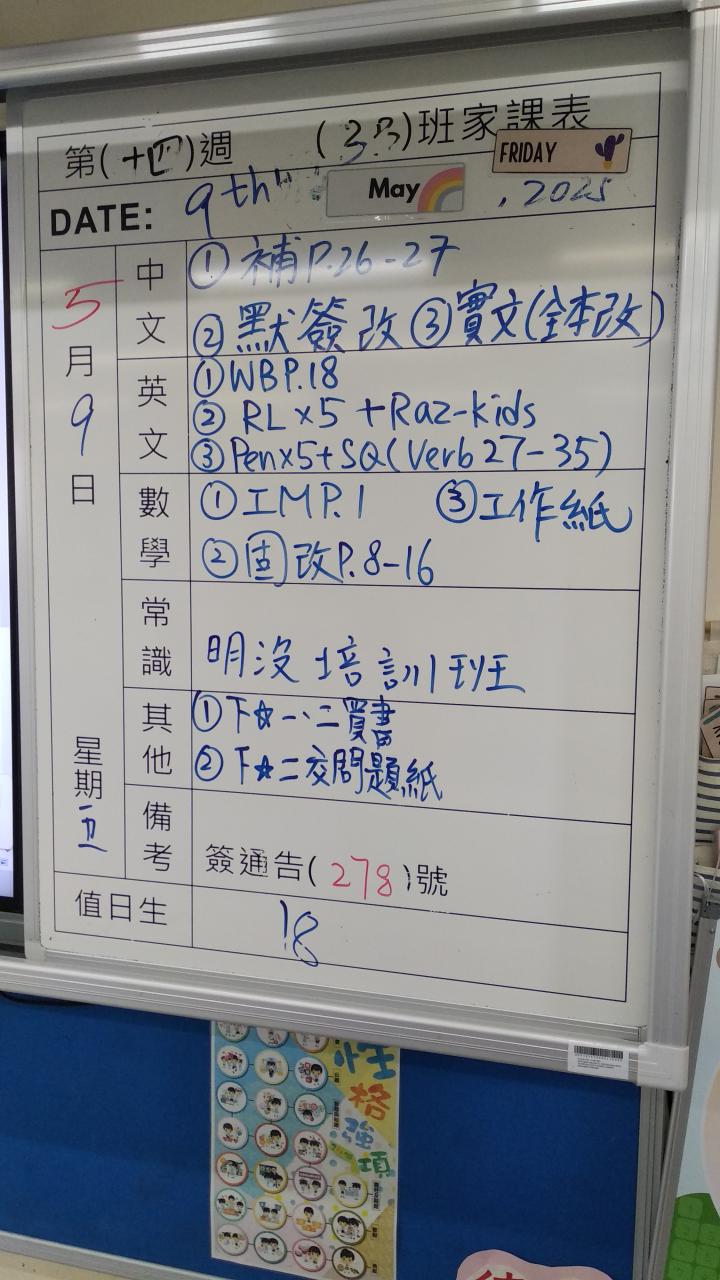 第(十四)週 (3B)班家課表
FRIDAY
DATE: 9th May , 2025
5月9日 星期五
中文
① 補P.26-27
② 默簽改 ③實文(全本改)
英文
①WBP.18
② RL×5 +Raz-kids
③Pen×5+SQ(Verb 27-35)
數學
①工MP.1 ③工作紙
②固改P.8-16
常識
明沒培訓班
其他
①下☆一、二買書
②下☆二交問題紙
備考
簽通告(278)號
值日生
18
性格強項